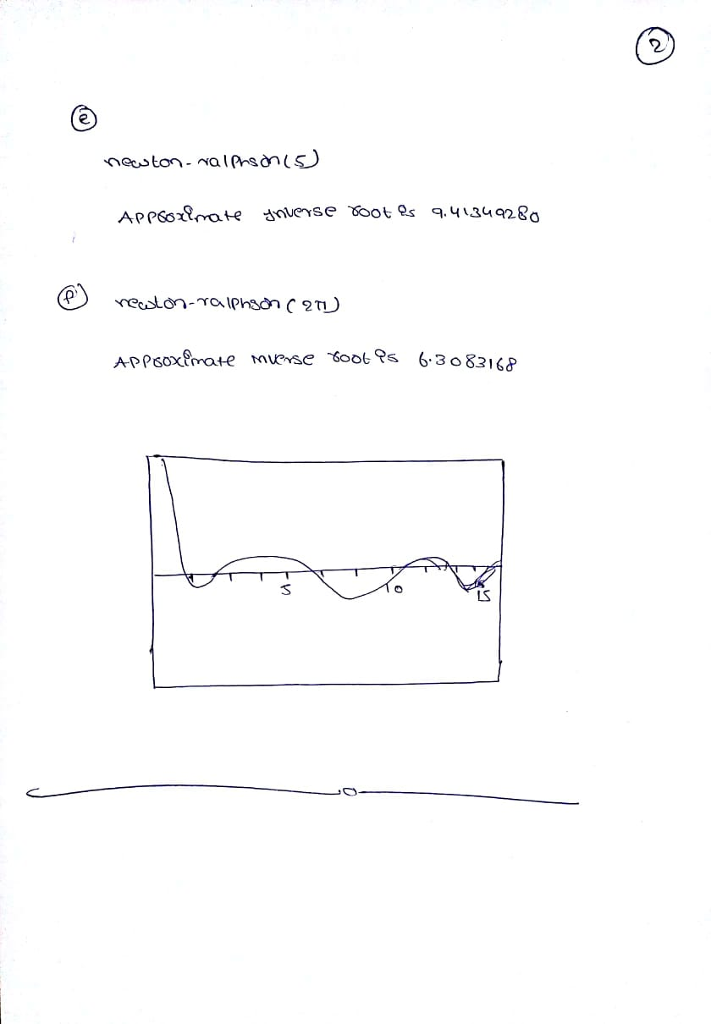 2
e
newton-ralphson(5)
Approximate inverse root is 9.41349280
f
newton-ralphson(2π)
Approximate inverse root is 6.3083168
5 10 15